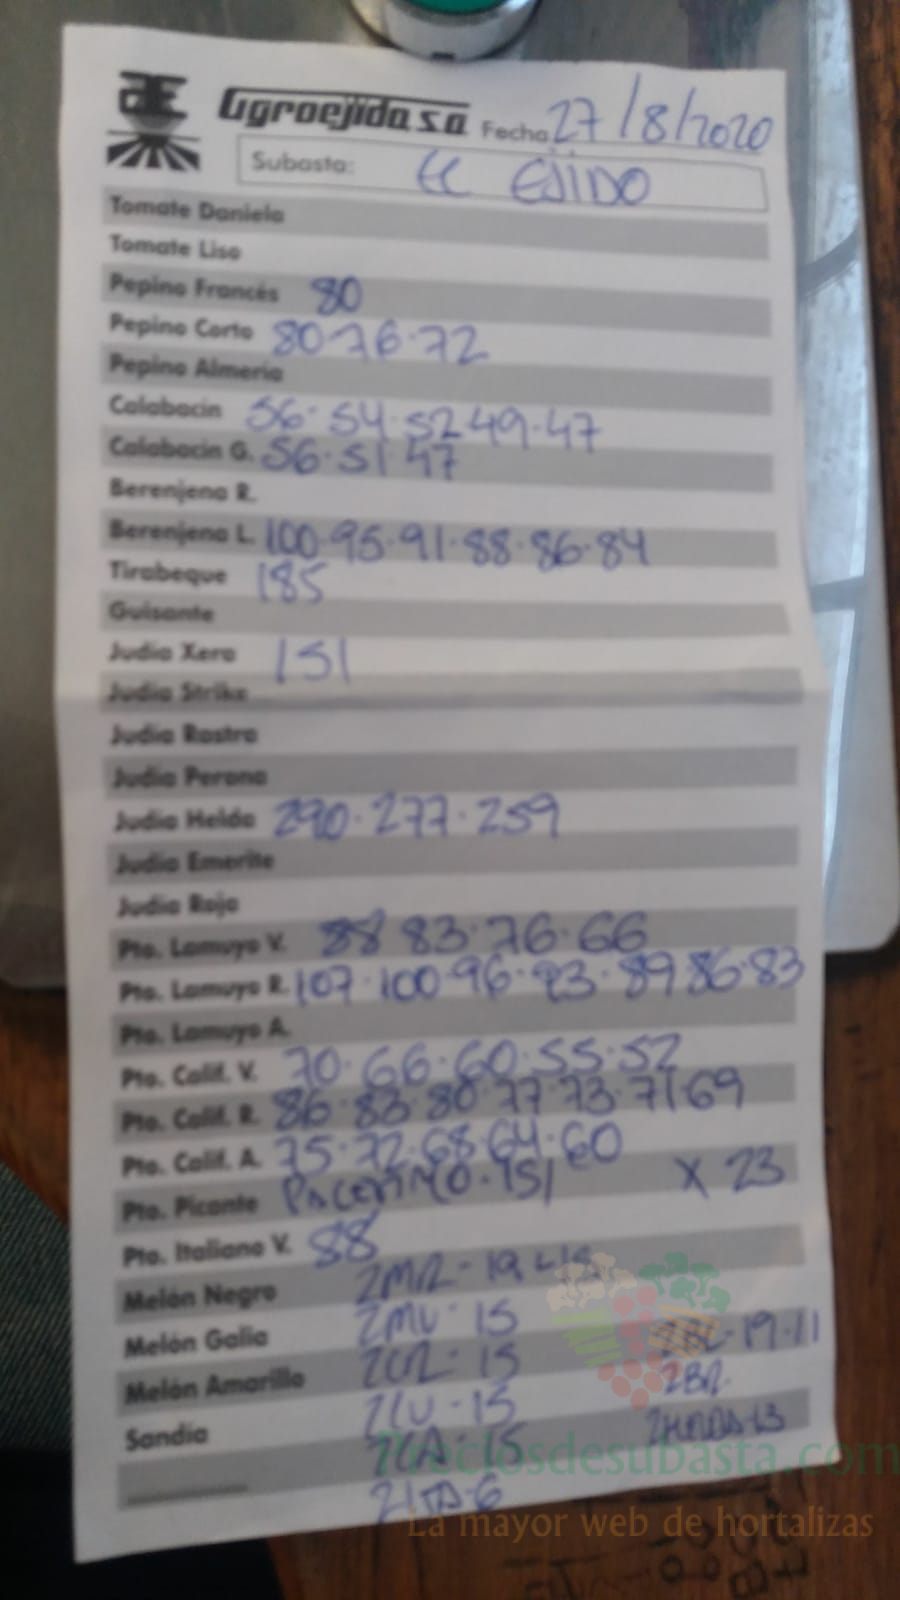 Agroejido s.a Fecha 27/8/2020
Subasta: EL EJIDO
Tomate Daniela
Tomate Liso
Pepino Francés 80
Pepino Corto 80·76·72
Pepino Almeria
Calabacin 56·54·52 49·47
Calabacin G. 56·51 47
Berenjena R.
Berenjena L. 100·95·91·88·86·84
Tirabeque 185
Guisante
Judia Xera 151
Judia Strike
Judia Rastra
Judia Perona
Judia Helda 290·277·259
Judia Emerite
Judia Roja
Pto. Lamuyo V. 88 83·76·66
Pto. Lamuyo R. 107·100·96·93·89 86·83
Pto. Lamuyo A.
Pto. Calif. V. 70·66·60·55·52
Pto. Calif. R. 86·83·80·77·73·71 69
Pto. Calif. A. 75·72·68·64·60
Pto. Picante 151 X 23
Pto. Italiano V. 88
Melón Negro 2MR-
2MV· 15
Melón Galia -19·11
Melón Amarillo 2CR- 15
2CV-15
Sandia 2CA- 15
-6
Preciosdesubasta.com
La mayor web de hortalizas